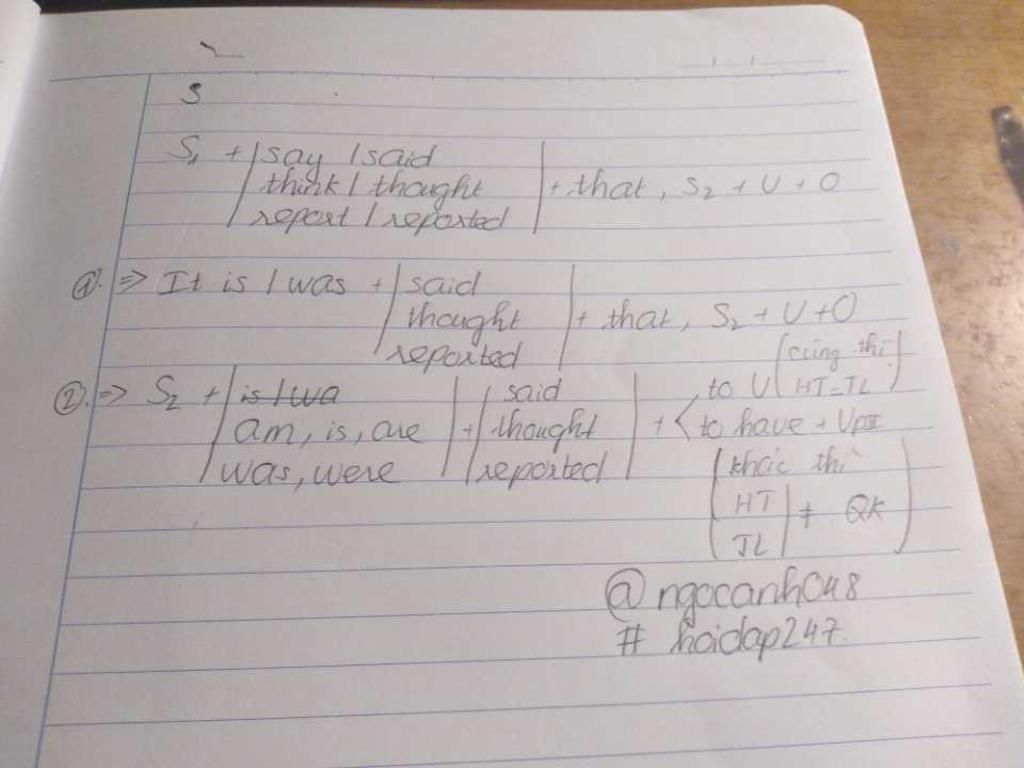 S
S₁ + | say / said
| think / thought | + that, S₂ + V + O
| report / reported
①. => It is / was + | said
| thought | + that, S₂ + V + O
| reported
(cùng thì
②. => S₂ + | is / wa | said to V HT=TL)
| am, is, are | + | thought | + < to have + VpII
| was, were | reported
(khác thì
HT | ≠ QK)
TL
@ngocanh048
# hoidap247.